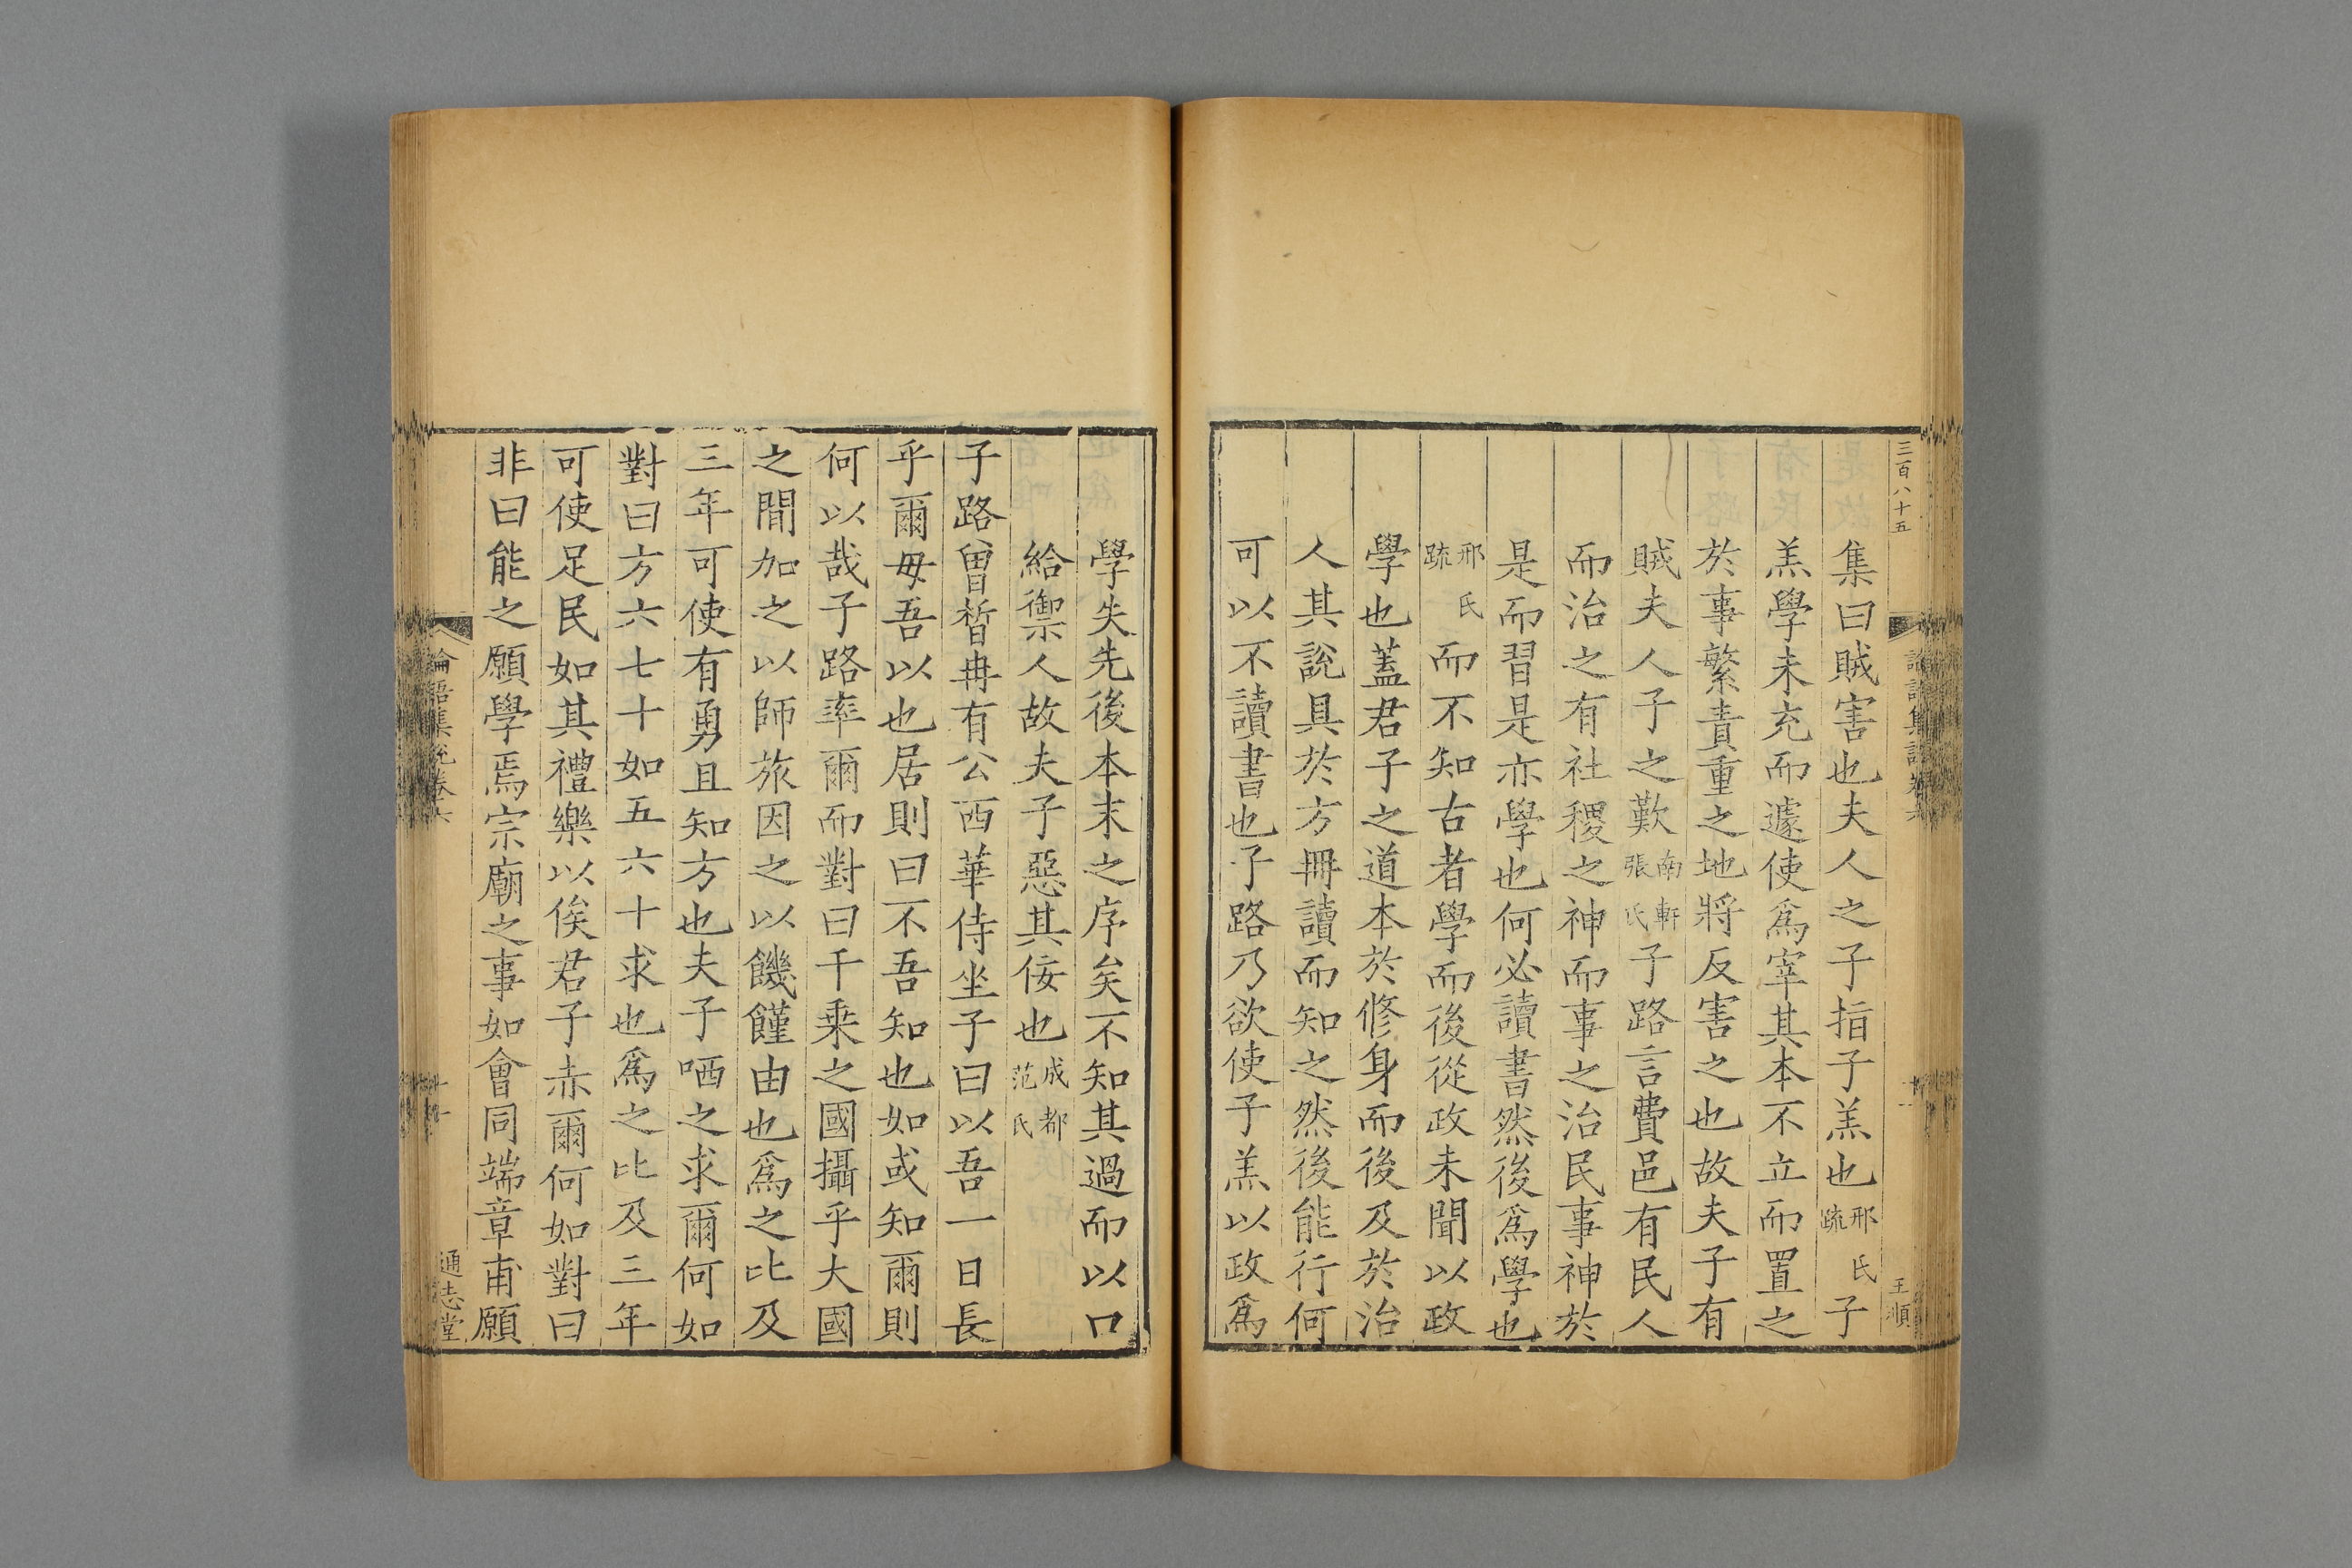 三百八十五
集曰賊害也夫人之子指子羔也邢氏疏子
羔學未充而遽使爲宰其本不立而置之
於事繁責重之地將反害之也故夫子有
賊夫人子之歎南軒張氏子路言費邑有民人
而治之有社稷之神而事之治民事神於
是而習是亦學也何必讀書然後爲學也
邢氏疏而不知古者學而後從政未聞以政
學也蓋君子之道本於修身而後及於治
人其說具於方冊讀而知之然後能行何
可以不讀書也子路乃欲使子羔以政爲
王順
學失先後本末之序矣不知其過而以口
給禦人故夫子惡其佞也成都范氏
子路曾晳冉有公西華侍坐子曰以吾一日長
乎爾毋吾以也居則曰不吾知也如或知爾則
何以哉子路率爾而對曰千乗之國攝乎大國
之間加之以師旅因之以饑饉由也爲之比及
三年可使有勇且知方也夫子哂之求爾何如
對曰方六七十如五六十求也爲之比及三年
可使足民如其禮樂以俟君子赤爾何如對曰
非曰能之願學焉宗廟之事如會同端章甫願
論語集說卷六
通志堂